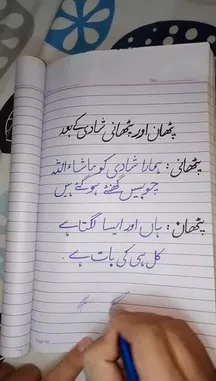 پٹھان اور پٹھانی شادی کے بعد
پٹھانی: ہمارا شادی کو ماشاءاللہ
چوبیس گھنٹے ہو گئے ہیں
پٹھان: ہاں اور ایسا لگتا ہے
کل ہی کی بات ہے۔